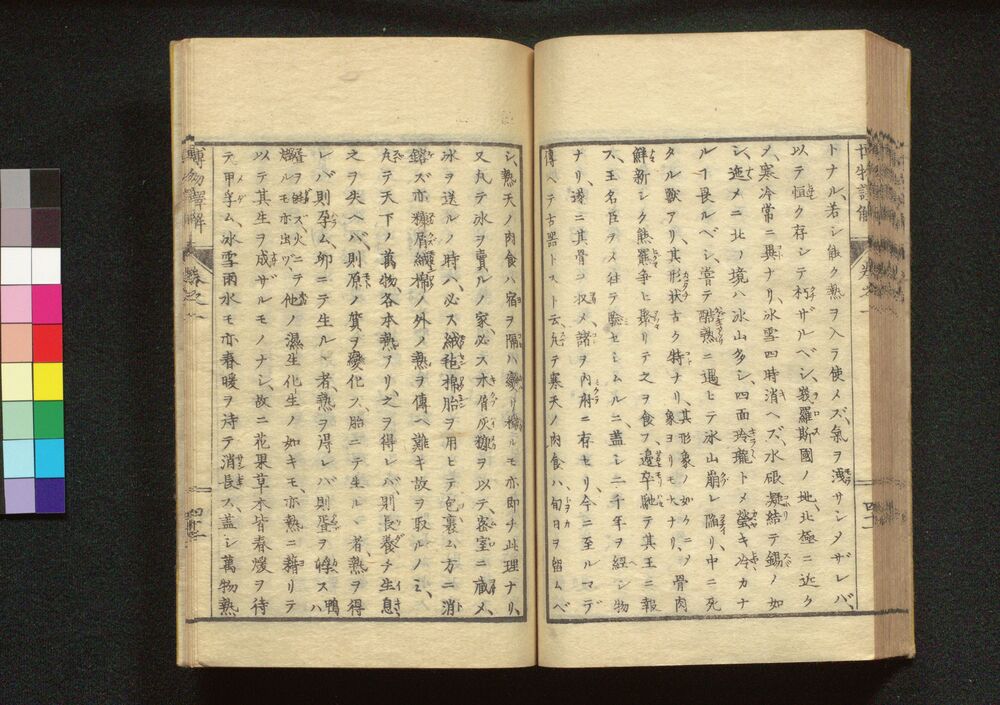 トナル、若シ能ク熱ヲ入ラ使メズ、氣ヲ洩サシメザレバ、
以テ恒ク存シテ朽ザルベシ、峩羅斯國ノ地、北極ニ近ク
メ、寒冷常ニ異ナリ、冰雪四時消ヘズ、水碬凝結テ錫ノ如
シ、迤メニ北ノ境ハ冰山多シ、四面玲瓏トメ瑩キ冷カナ
ルヿ畏ルベシ、嘗テ酷熟ニ遇ヒテ冰山崩レ陥リ中ニ死
タル獸アリ、其形狀古ク特ナリ、其形象ノ如クニ〆象ヨリモ大ナリ、骨肉
鮮新シク熊羆爭ヒ聚リテ之ヲ食フ、邊卒馳テ其王ニ報
ス、王名臣ヲメ往テ驗セシムルニ、盖シ二千年ヲ經シ物
ナリ、遂ニ其骨ヲ収メ、諸ヲ內府ニ存セリ、今ニ至ルマデ
傳ヘテ古器トスト云、凢テ寒天ノ肉食ハ、旬日ヲ留ムベ
シ、熱天ノ肉食ハ宿ヲ隔ハ變リ壊ルモ亦即チ此理ナリ、
又凢テ冰ヲ賣ルノ家、必ス木屑灰糠ヲ以テ、密室ニ藏メ、
冰ヲ送ルノ時ハ、必ス絨毡棉胎ヲ用ヒテ包裹ム、方ニ消
鎔ズ、亦糠屑絨棉ノ外ノ熱ヲ傳ヘ難キ故ヲ取ルノミ、
凢テ天下ノ萬物各本熱アリ、之ヲ得レバ則長養チ生息、
之ヲ失ヘバ、則原ノ質ヲ變化ス、胎ニテ生ル丶者、熱ヲ得
レバ則孕ム、卵ニテ生ル丶者熱ヲ得レバ則蛋ヲ㷖ス、鴨ハ
蛋ヲ㷖ズ火ニテ㷖ルモ亦出ヅ、他ノ濕生化生ノ如キモ、亦熱ニ藉リテ
以テ其生ヲ成ザルモノナシ、故ニ花果草木皆春煖ヲ待
テ、甲孚ム、冰雪雨水モ亦春暖ヲ待テ消長ス、盖シ萬物熱
博物譯解
卷之一
四十二